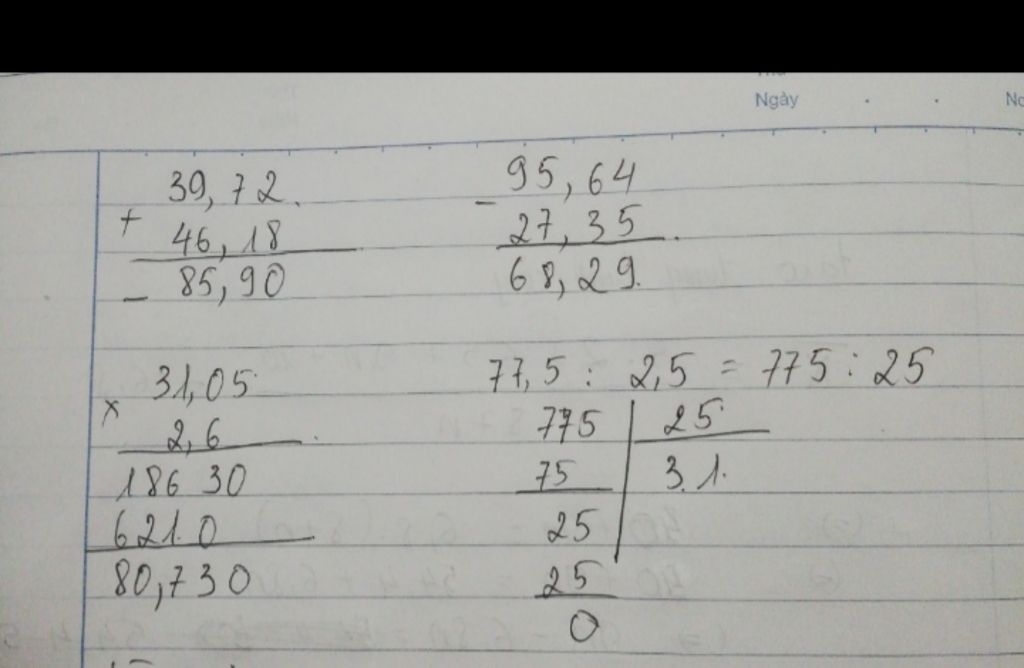 Ngày
39,72
+
46,18
85,90
95,64
-
27,35
68,29
31,05
x
2,6
18630
6210
80,730
77,5 : 2,5 = 775 : 25
775 25
75 31
25
25
0